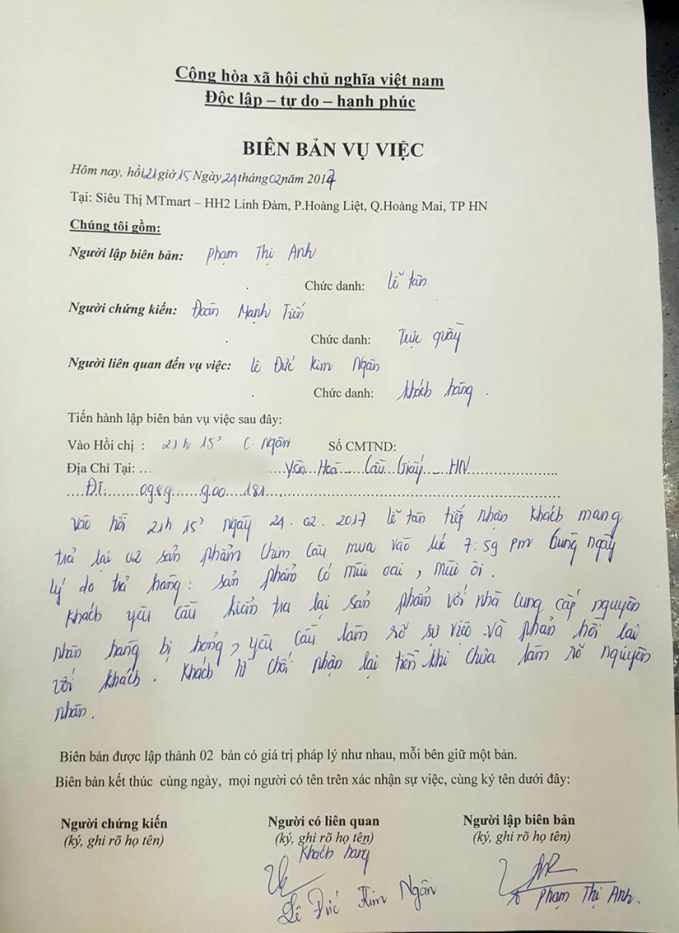 Cộng hòa xã hội chủ nghĩa việt nam
Độc lập – tự do – hạnh phúc
BIÊN BẢN VỤ VIỆC
Hôm nay, hồi 21 giờ 15 Ngày 24 tháng 02 năm 2017
Tại: Siêu Thị MTmart – HH2 Linh Đàm, P.Hoàng Liệt, Q.Hoàng Mai, TP HN
Chúng tôi gồm:
Người lập biên bản: Phạm Thị Anh
Chức danh: Lễ tân
Người chứng kiến: Đoàn Mạnh Tiến
Chức danh: Trực quầy
Người liên quan đến vụ việc: Lê Đức Kim Ngân
Chức danh: Khách hàng.
Tiến hành lập biên bản vụ việc sau đây:
Vào Hồi chị : 21h 15' C. Ngân Số CMTND:
Địa Chi Tại: ... Yên Hoà Cầu Giấy HN
ĐT: 0989 900 181
Vào hồi 21h 15' ngày 24.02.2017 lễ tân tiếp nhận khách mang
trả lại 02 sản phẩm chim câu mua vào lúc 7:59 pm cùng ngày
lý do trả hàng: sản phẩm có mùi oai, mùi ôi.
Khách yêu cầu kiểm tra lại sản phẩm với nhà cung cấp nguyên
nhân hàng bị hỏng, yêu cầu làm rõ sự việc và phản hồi lại
với khách. Khách từ chối nhận lại tiền khi chưa làm rõ nguyên
nhân.
Biên bản được lập thành 02 bản có giá trị pháp lý như nhau, mỗi bên giữ một bản.
Biên bản kết thúc cùng ngày, mọi người có tên trên xác nhận sự việc, cùng ký tên dưới đây:
Người chứng kiến Người có liên quan Người lập biên bản
(ký, ghi rõ họ tên) (ký, ghi rõ họ tên) (ký, ghi rõ họ tên)
Khách hàng
Lê Đức Kim Ngân Phạm Thị Anh.